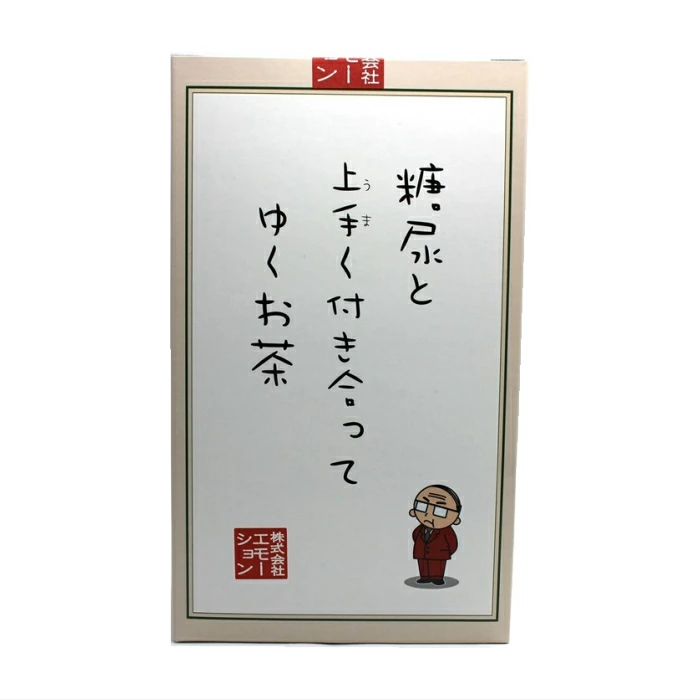 会社
モー
ン
糖尿と
上手く付き合って
うま
ゆくお茶
株式会社
エモー
ション